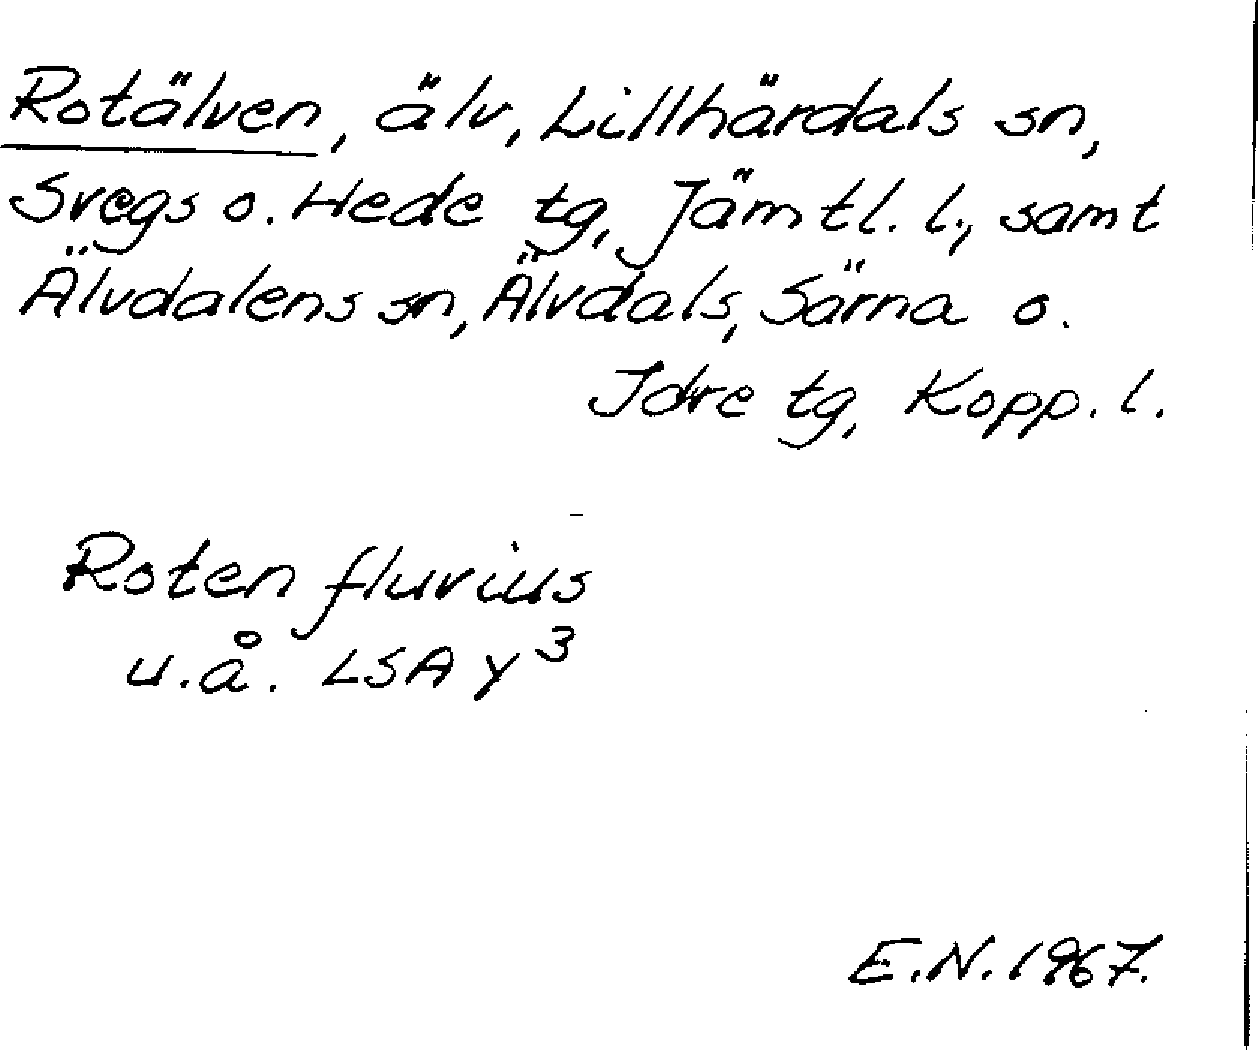 Rotälven, älv, Lillhärdals sn,
Svegs o. Hede tg, Jämtl. l., samt
Älvdalens sn, Älvdals, Särna o.
Idre tg, Kopp. l.
Roten fluvius
u.å. LSA y³
E.N. 1967.